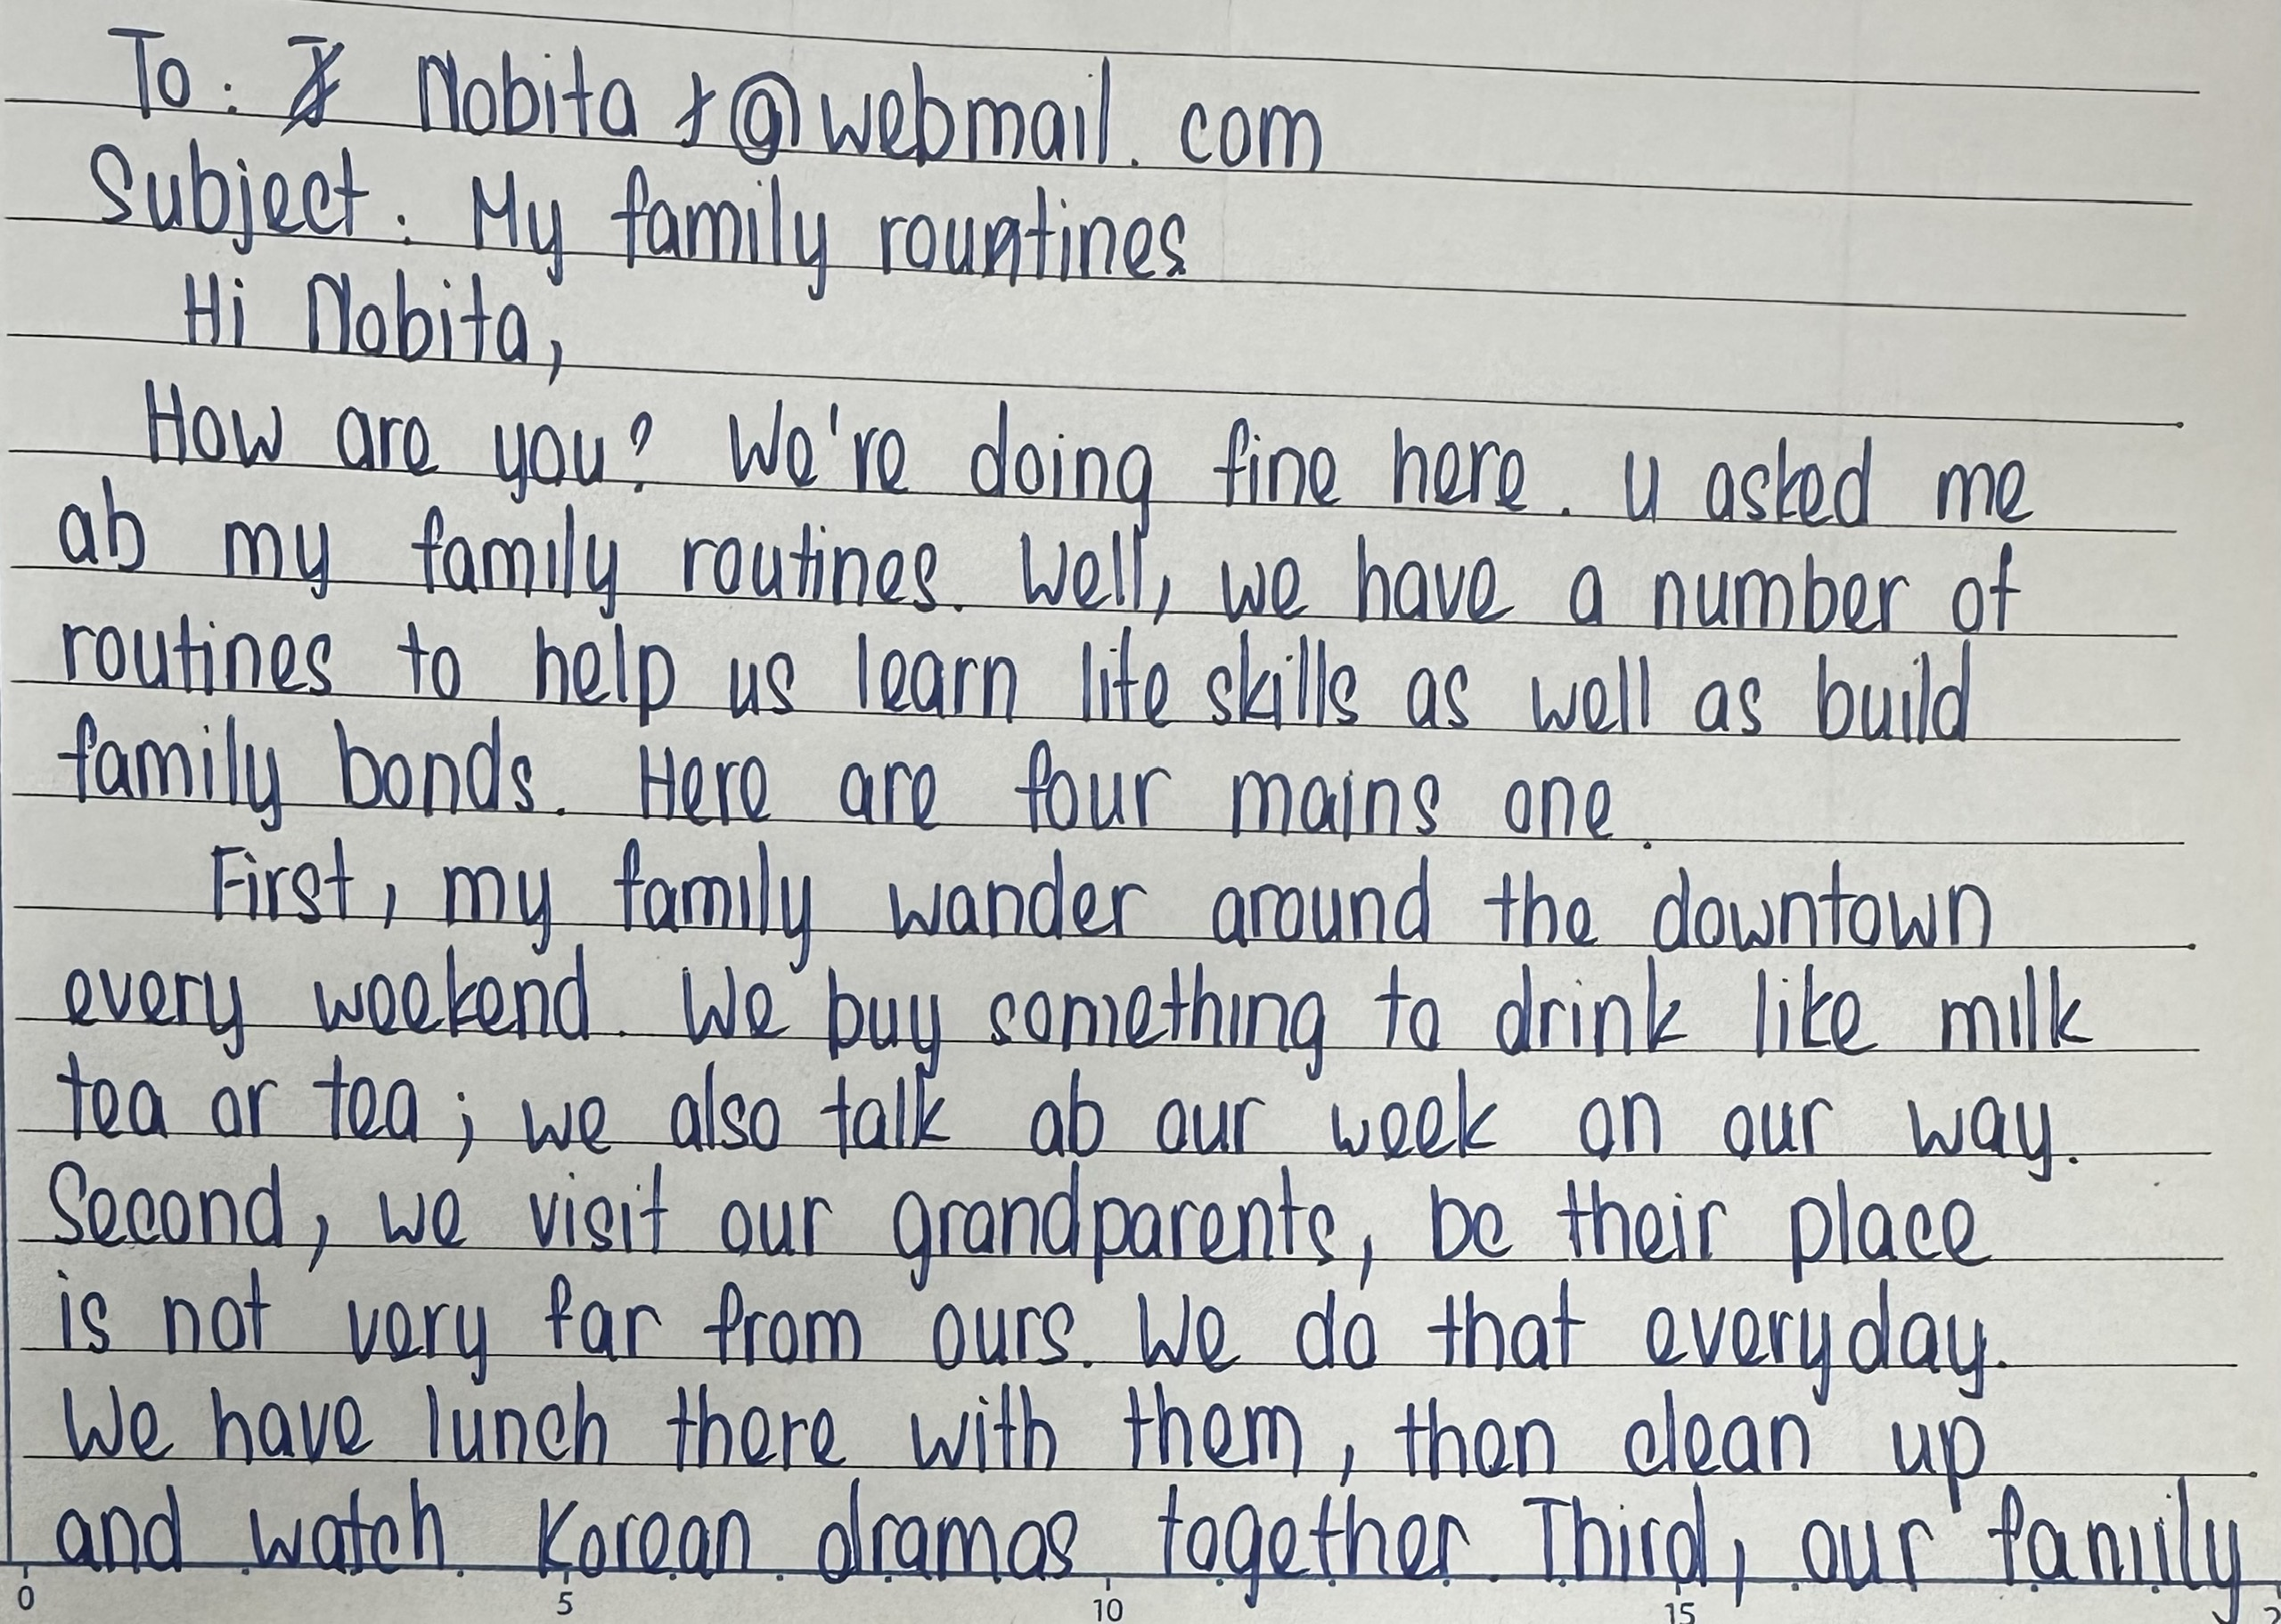 To: Nobita t@webmail.com
Subject: My family rountines
Hi Nobita,
How are you? We're doing fine here. U asked me
ab my family routines. Well, we have a number of
routines to help us learn life skills as well as build
family bonds. Here are four mains one.
First, my family wander around the downtown
every weekend. We buy something to drink like milk
tea or tea; we also talk ab our week on our way.
Second, we visit our grandparents, bc their place
is not very far from ours. We do that everyday.
We have lunch there with them, then clean up
and watch Korean dramas together. Third, our family
0 5 10 15